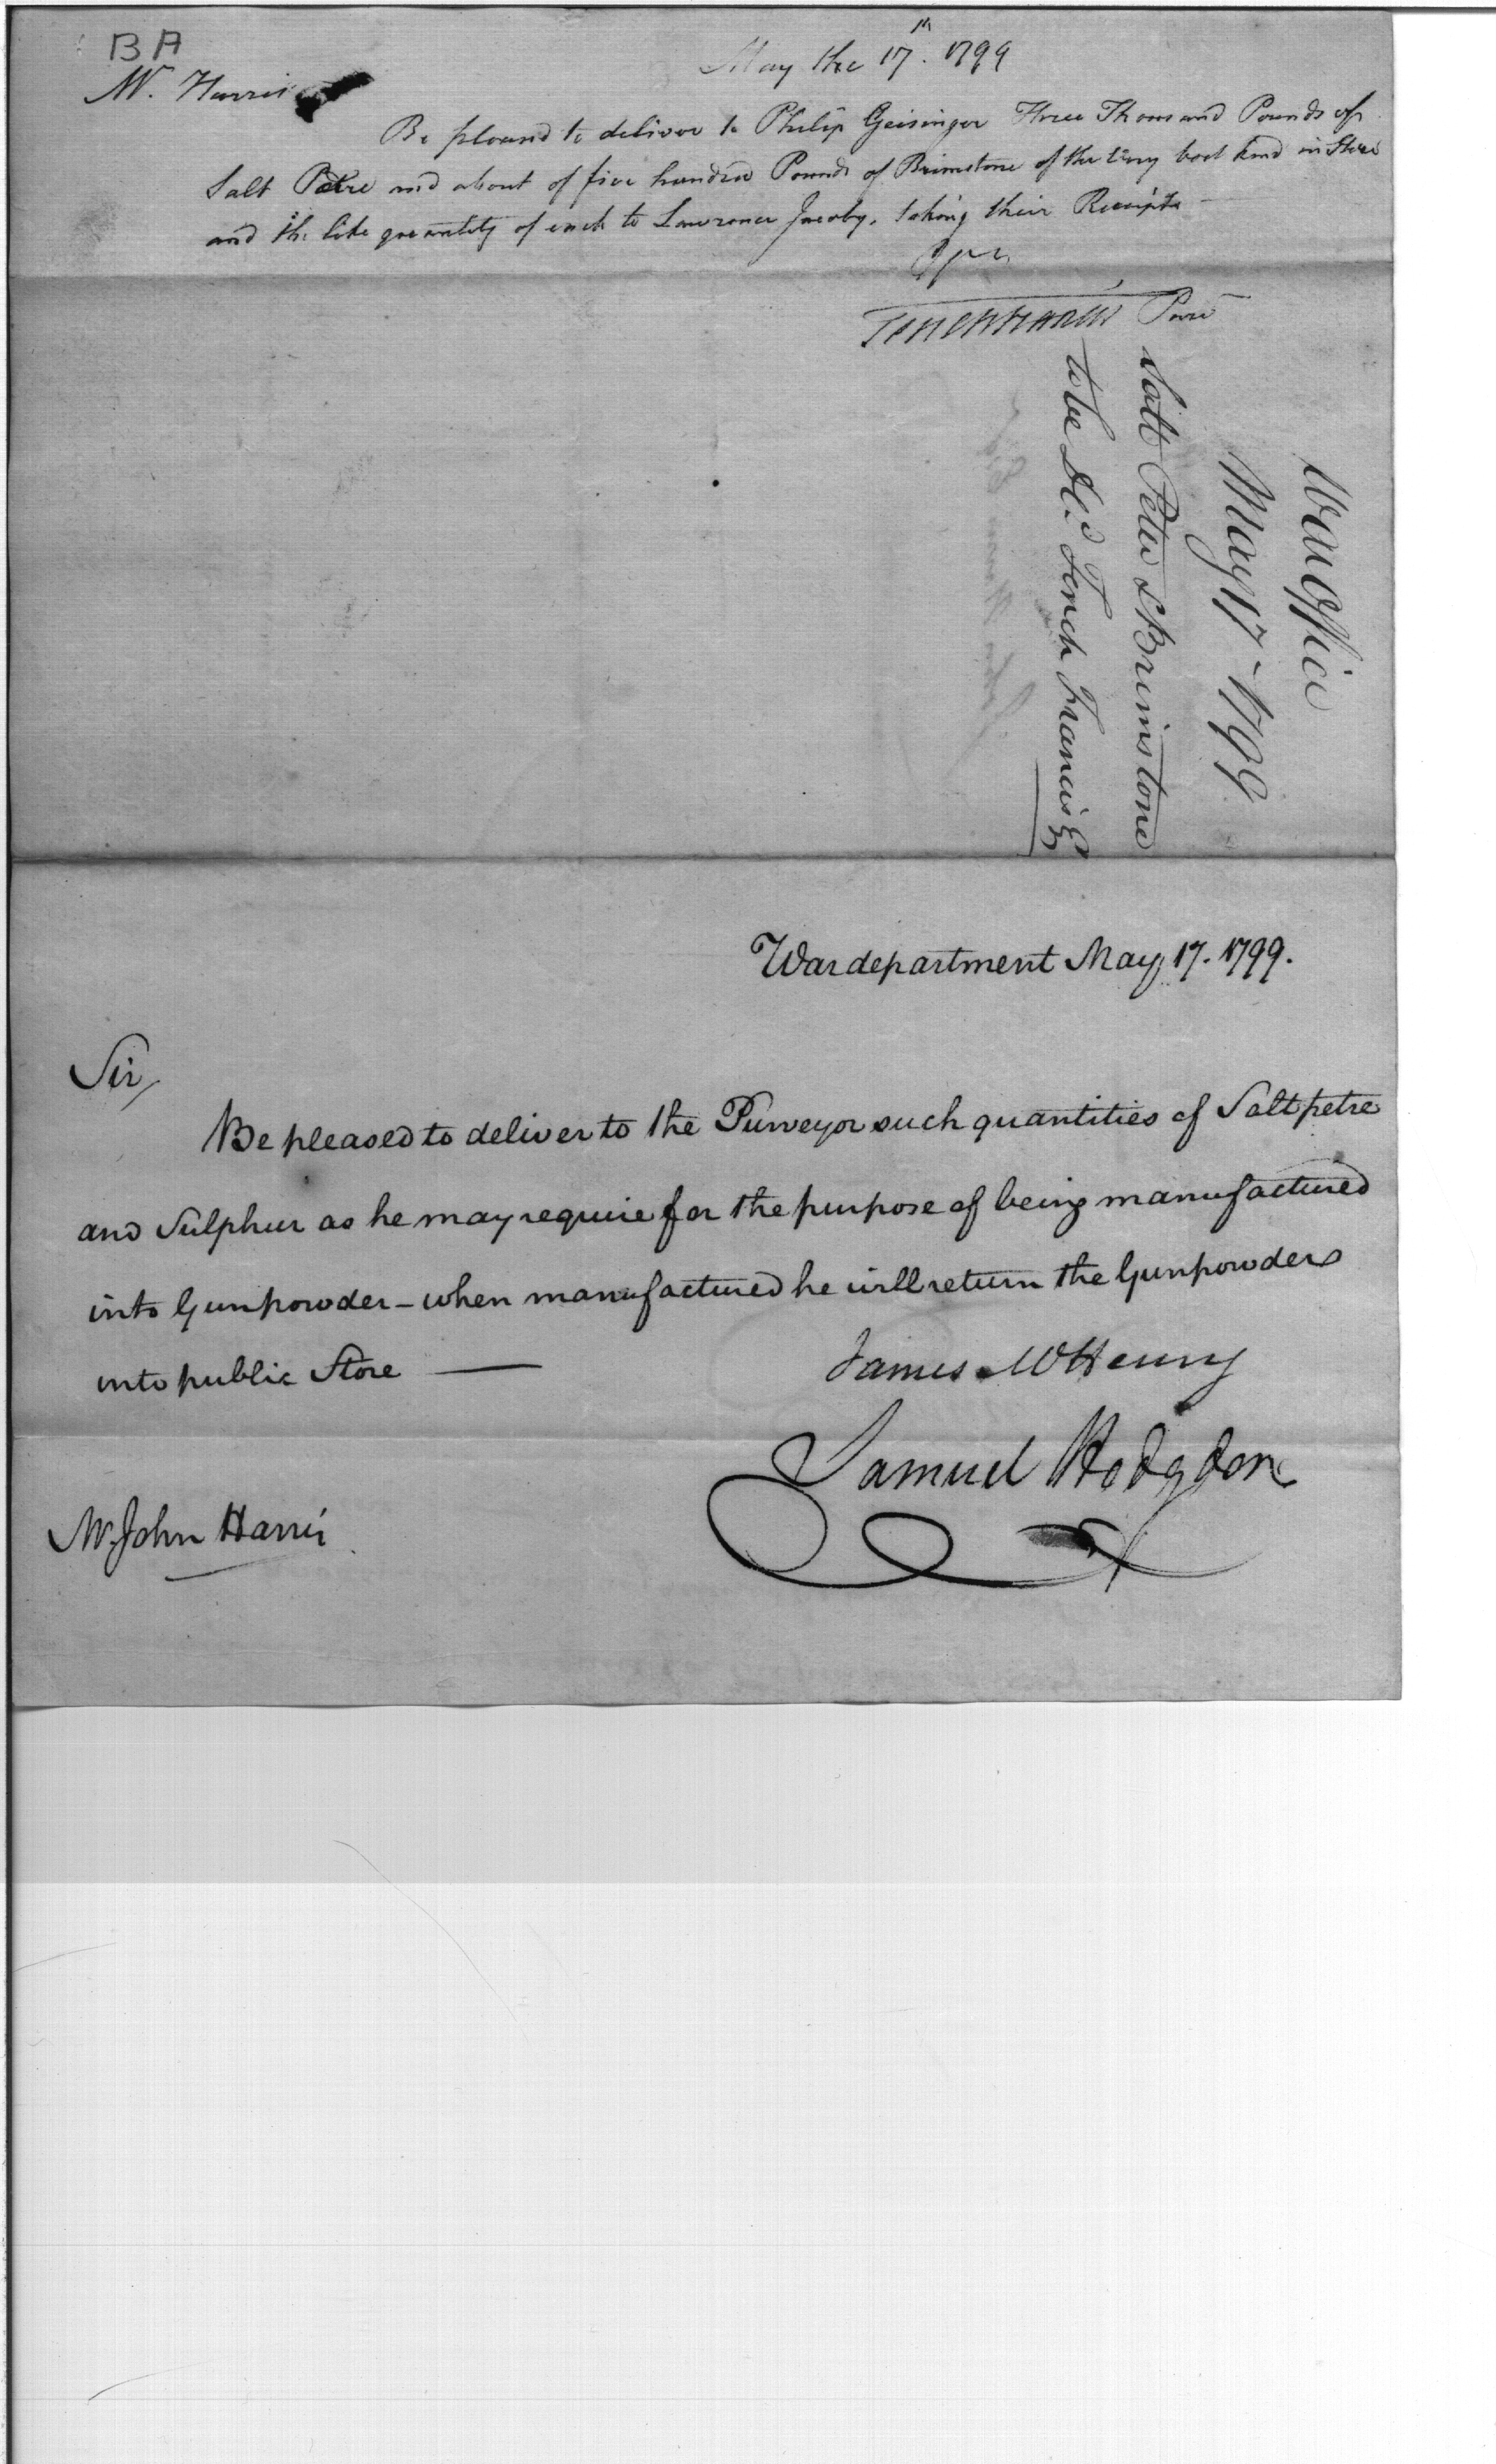 BA
May the 17th. 1799
Mr. Harris
Be pleased to deliver to Philip Geisinger Three Thousand Pounds of
Salt Petre and about of five hundred Pounds of Brimstone of the very best kind in Store
and the like quantity of each to Lawrence Jacoby, taking their Receipts
Tench Francis Purv
War Office
May 17 - 1799
Salt Peter & Brimstone
to be Dld. Tench Francis E
War department May, 17. 1799.
Sir,
Be pleased to deliver to the Purveyor such quantities of Saltpetre
and Sulphur as he may require for the purpose of being manufactured
into Gunpowder - when manufactured he will return the Gunpowder
into public Store —
James McHenry
Samuel Hodgdon
Mr. John Harris